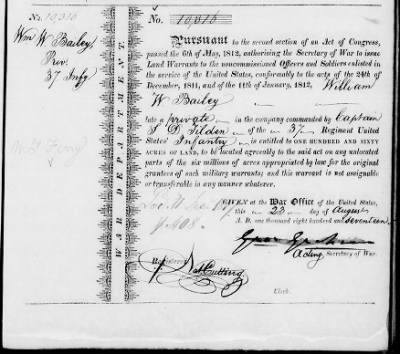 No. 19316
Wm W Bailey,
Priv.
37 Infy
WAR DEPARTMENT.
No. 19316
PURSUANT to the second section of an Act of Congress,
passed the 6th of May, 1812, authorising the Secretary of War to issue
Land Warrants to the noncommissioned Officers and Soldiers enlisted
in the service of the United States, conformably to the acts of the 24th of
December, 1811, and of the 11th of January, 1812, William
W Bailey
late a private in the company commanded by Captain
S D Tilden of the 37 Regiment United
States' Infantry is entitled to ONE HUNDRED AND SIXTY
ACRES OF LAND, to be located agreeably to the said act on any unlocated
parts of the six millions of acres appropriated by law for the original
grantees of such military warrants; and this warrant is not assignable
or transferable in any manner whatever.
GIVEN at the War Office of the United States,
this 23 day of August
A. D. one thousand eight hundred and seventeen
Acting, Secretary of War.
Registered
Cutting
Clerk.